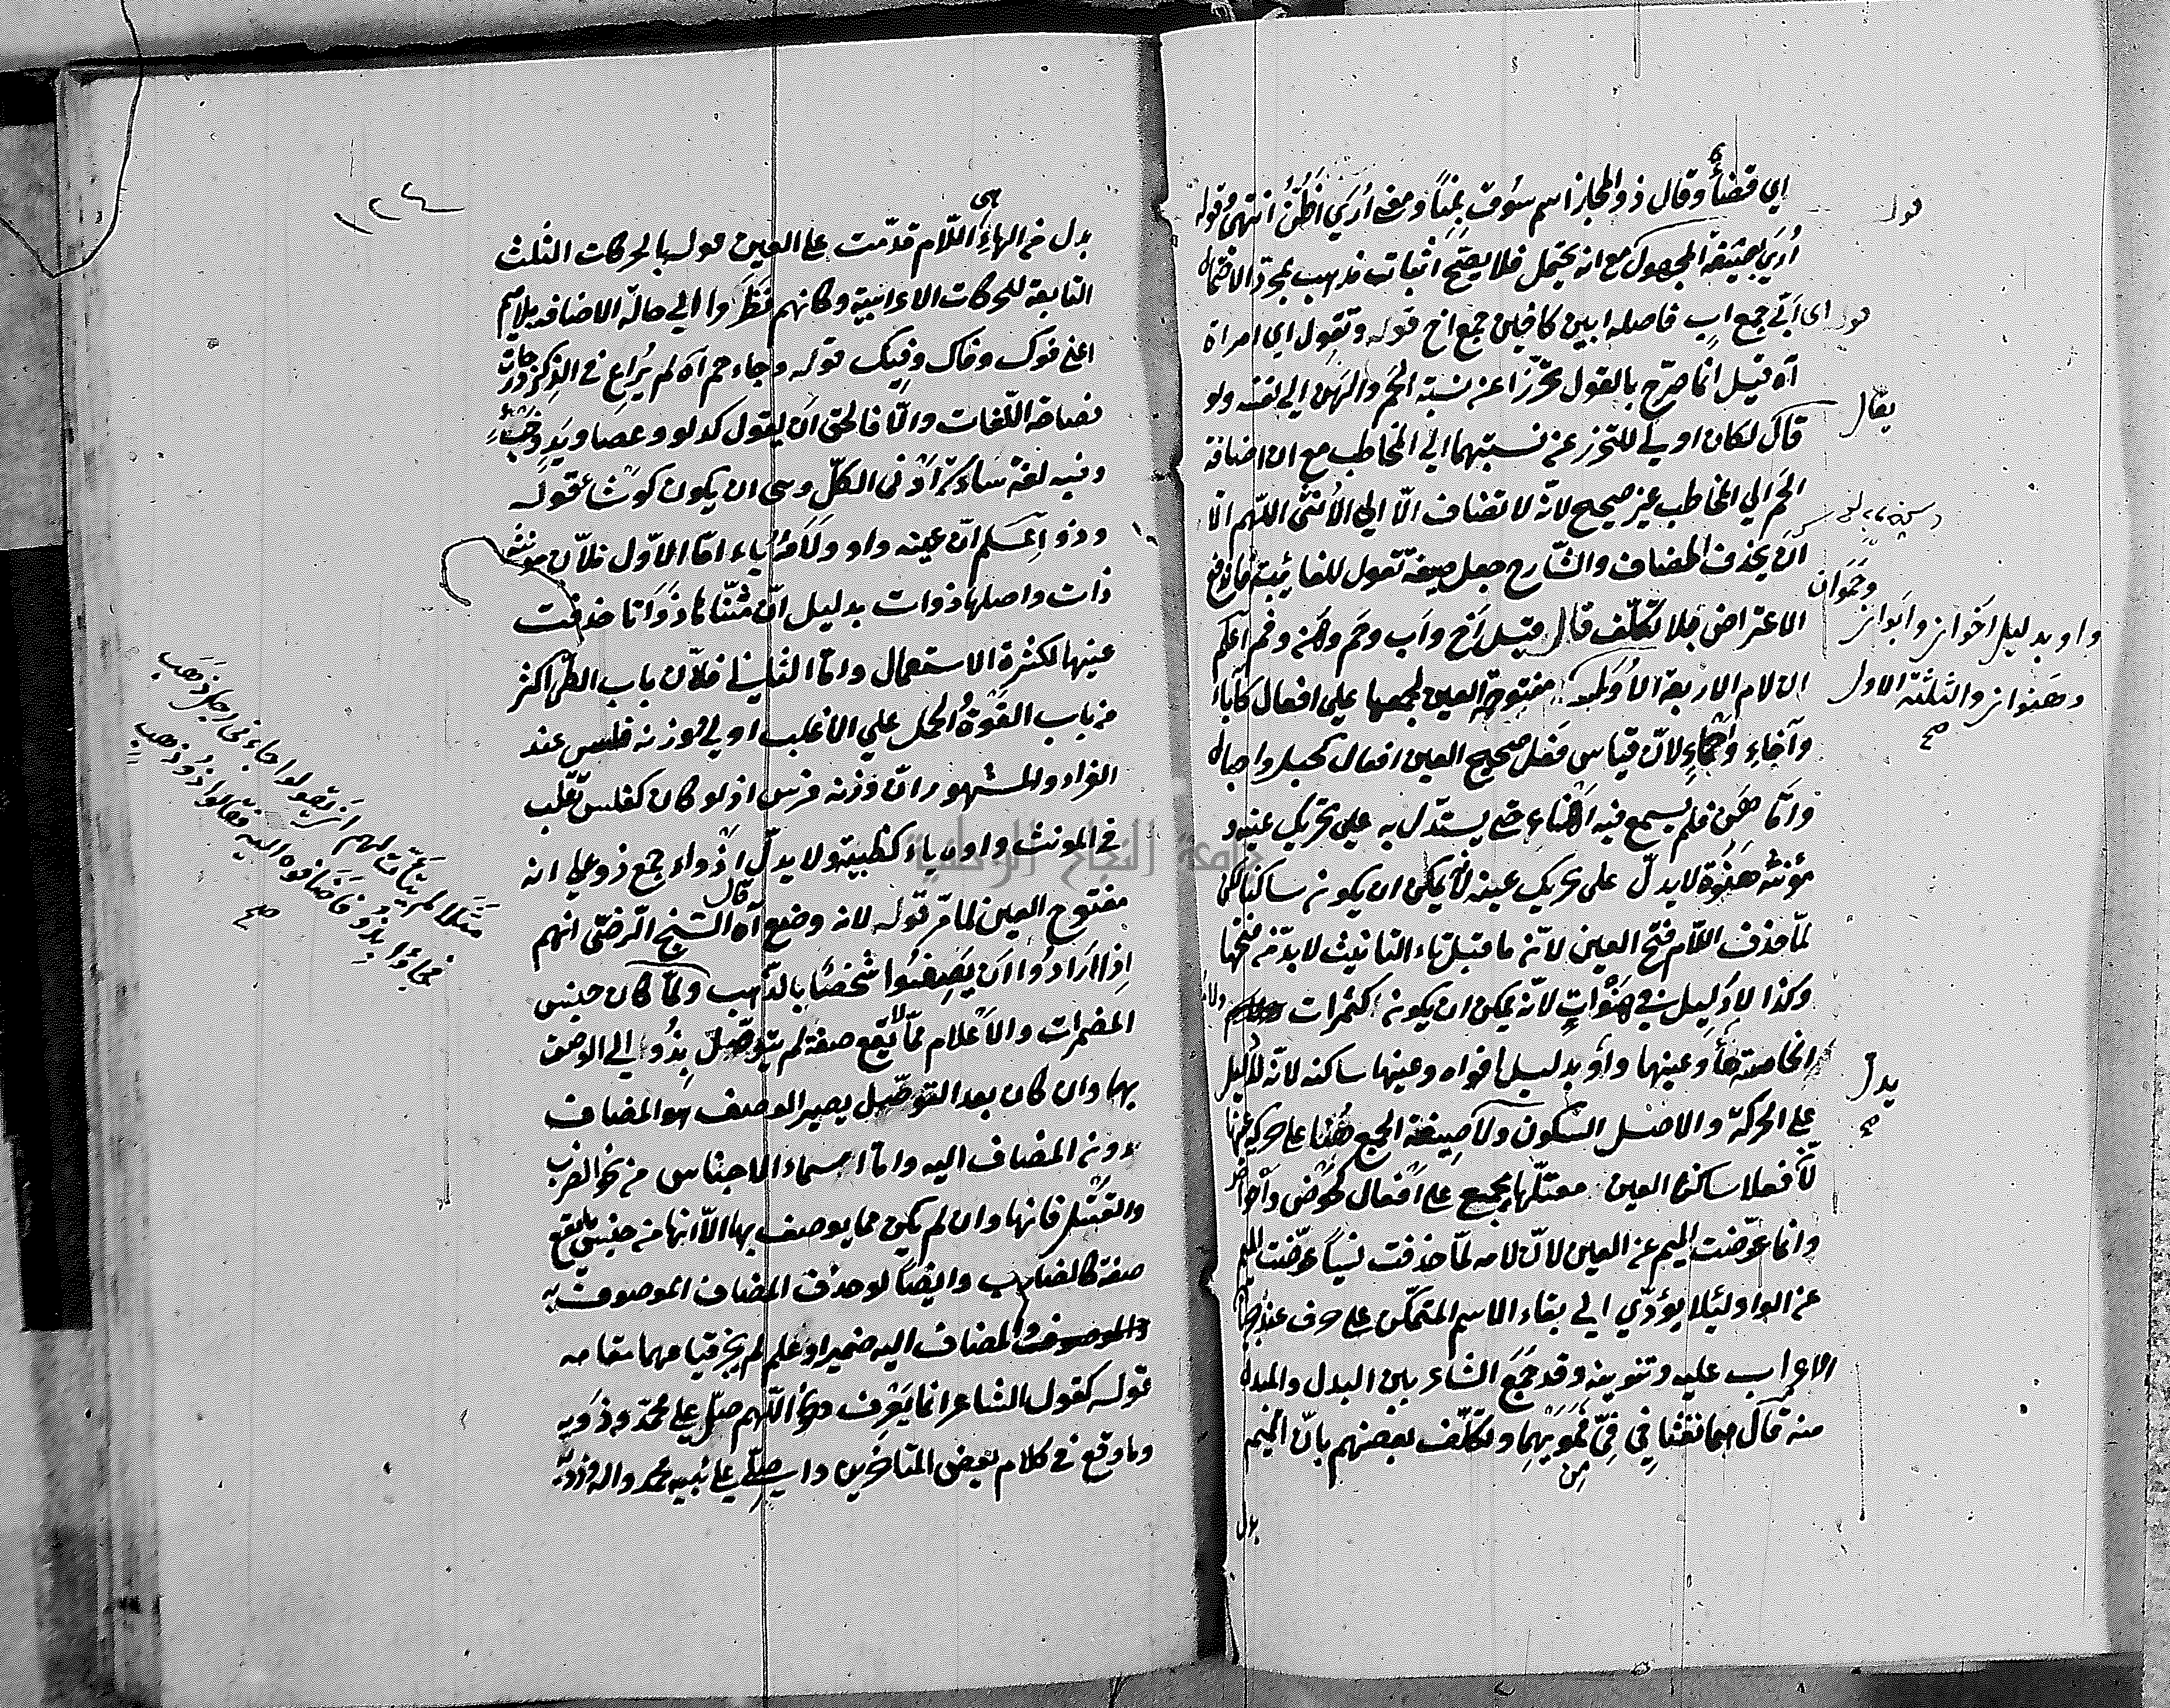 اي قضأ وقال ذو المجاز اسم سوق بمنًا ومعنى اُرَي اَظُنُّ انتهى وقوله
اُرَي بصيغة المجهول مع انه يحتمل فلا يصح اثبات مذهب بمجرد الاحتمال
قوله اى اَبِّى جمع اب فاصله ابين كاخين جمع اخ قوله وتقول اي امراة
آه قيل انما صرّح بالقول تحرّزًا عن نسبة الحم والهن الي نفسه ولو
قال لكان اولي للتحرز عن نسبتهما الي المخاطب مع ان اضافة
يقال
الحم الي المخاطب غير صحيح لانّه لا تضاف الّا الي الاُنثى اللّهم الّا
اَن يحذف المضاف والشّارح جعل صيغة تقول للغائبة فاندفع
الاعتراض بلا تكلّف قال قيل اَخ واَب وحَم وهَن وفم اعلم
ان لام الاربعة الاُوَل مفتوحة العين لجمعها علي افعال كآباء
وحَمَوان
واو بدليل اَخوان واَبوان
وهَنوان والثلثة الاول
صح
وآخاءِ واَحْماءٍ لانّ قياس فَعَل صحيح العين افعال كجبل واجبال
وامّا هَن فلم يسمع فيه اَهْنَاء حتي يستدلّ به علي تحريك عينه و
مؤنثه هَنَوة لا يدلّ على تحريك عينه لانّه يمكن ان يكون ساكنا لكن
لمّا حذف اللّام فتح العين لانّه ما قبل تاء التانيث لا بدّ من فتحها
وكذا لا دليل في هَنْوات لانّه يمكن ان يكون كثمرات ولام
الخامسة هاء وعينهما واو بدليل افواه وعينها ساكنه لانّه لا دليل
على الحركة والاصل السّكون ولا صيغة الجمع هُنا على حركة عينها
يدل
صح
لاَنّ فعلا ساكن العين معتلّها يجمع على اَفعال كحوض واَحواض
وانما عوّضت الميم عن العين لانّ لامه لمّا حذفت نسيًا عوّضت الميم
عن الواو لئلا يؤدّي الي بقاء الاسم المتمكّن على حرف عند
الاعراب عليه وتنوينه وقد جَمَعَ الشاعر بين البدل والمبدل
منه قال هما نفثا فِي فِيَّ من فَمَوَيْهِما وتكلّف بعضهم بانّ الميم
بدل
١٢٤
بدل من الهاء التى اللّام قدّمت على العين قوله بالحركات الثلث
التابعة للحركات الاعرابية وكانهم نَظَروا الي حالة الاضافة بلا ميم
اعني فوك وفاك وفيك قوله وجاء حم آه لم يُراعِ في الذكر
فصاحة اللّغات والّا فالحق اَن يقول كدلو وعصا ويَدٍ وخَبْءٍ
وفيه لغة سادسة في الكلّ وهى ان يكون كرشاء قوله
وذو اِعلم انّ عينه واو ولامُه ياء امّا الاوّل فلانّ مونثه
ذات واصلها ذوات بدليل انّ مثنّاها ذَوَاتا حذفت
عينها لكثرة الاستعمال وامّا الثاني فلانّ باب الطّي اكثر
من باب القُوّة الحمل علي الاغلب اولي ووزنه فلس عند
الفراء والمشهور انّ وزنه فرس اذ لو كان كفلس لقلب
في المونث واوه ياء كظبية ولا يدلّ اَذْواء جمع ذو على انه
مفتوح العين لما مرّ قوله لانه وضع آه قال الشيخ الرّضىّ انهم
اِذا ارَادُوا اَن يَصِفُوا شخصًا بالذّهب
مَثَلاً لم يتأتّ لهم ان يقولوا جاءنى رجل ذَهَب
فجاؤا بِذُو فاضافوه اليه فقالوا ذو ذهبٍ
صح
ولمّا كان جنس
المضمرات والاَعْلام ممّا لا يقع صفة لم يتوصّل بِذُو الي الوصف
بها وان كان بعد التوصّل يصير الوصف هو المضاف
دون المضاف اليه وامّا اسماء الاجناس من نحو الضرب
والقتل فانها وان لم يكن مما يوصف بها الاّ انها من جنس ما يقع
صفة كالضارب وايضًا لو حذف المضاف الموصوف به
والمضاف اليه ضمير او علم لم يجز قيامهما مقامه
قوله كقول الشاعر انما يَعْرِف اللّهم صلّ على محمّد وذويه
وما وقع في كلام بعض المتاخرين والله يصلّي علي نبيه محمد واله وذويه